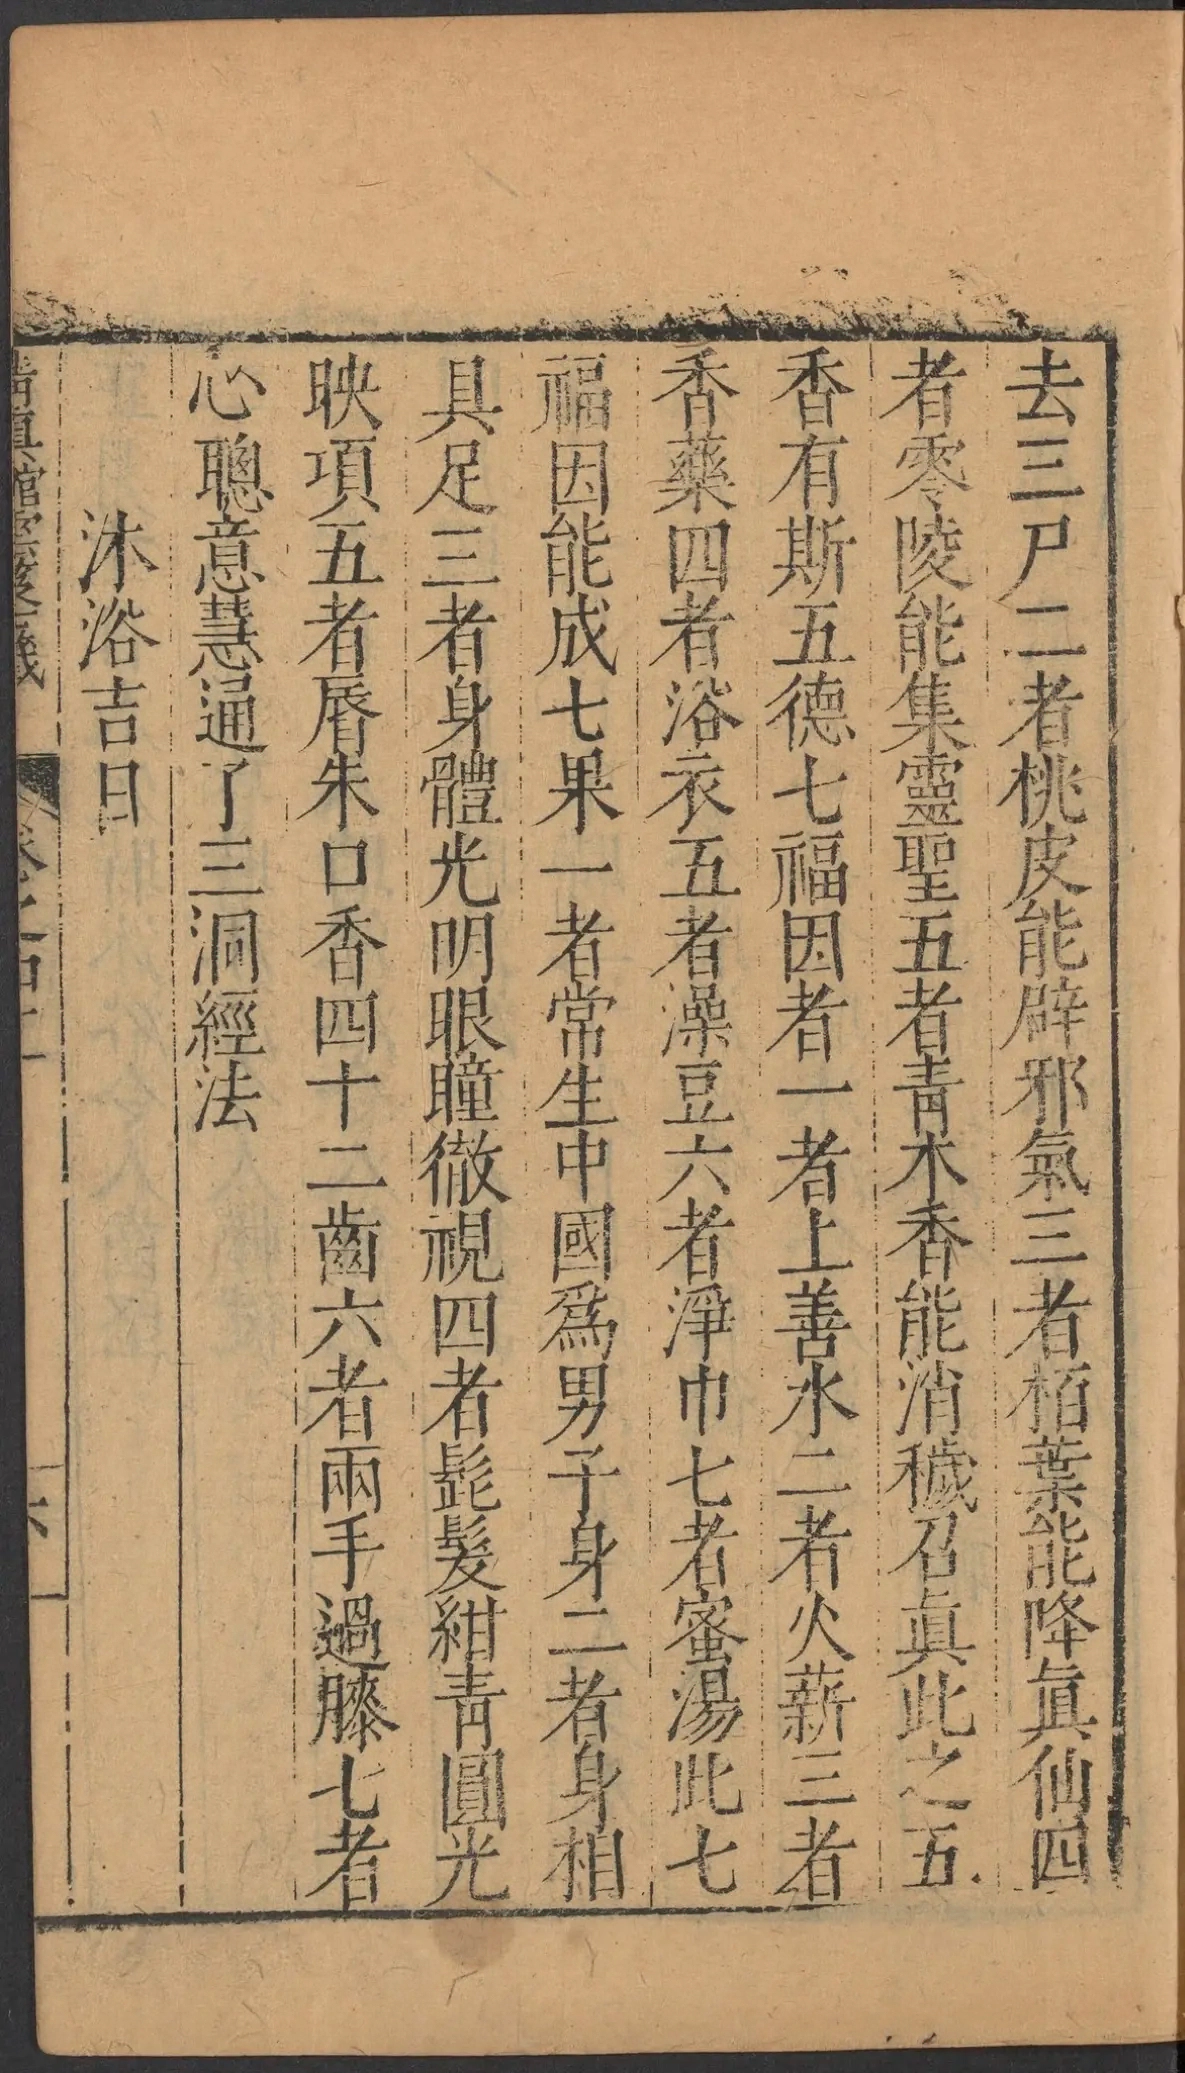 去三尸二者桃皮能辟邪氣三者栢葉能降眞仙四
者零陵能集靈聖五者靑木香能消穢召眞此之五
香有斯五德七福因者一者上善水二者火薪三者
香藥四者浴衣五者澡豆六者淨巾七者蜜湯此七
福因能成七果一者常生中國爲男子身二者身相
具足三者身體光明眼瞳徹視四者髭髮紺靑圓光
映項五者脣朱口香四十二齒六者兩手過膝七者
心聰意慧通了三洞經法
沐浴吉日
卷之四十一
六